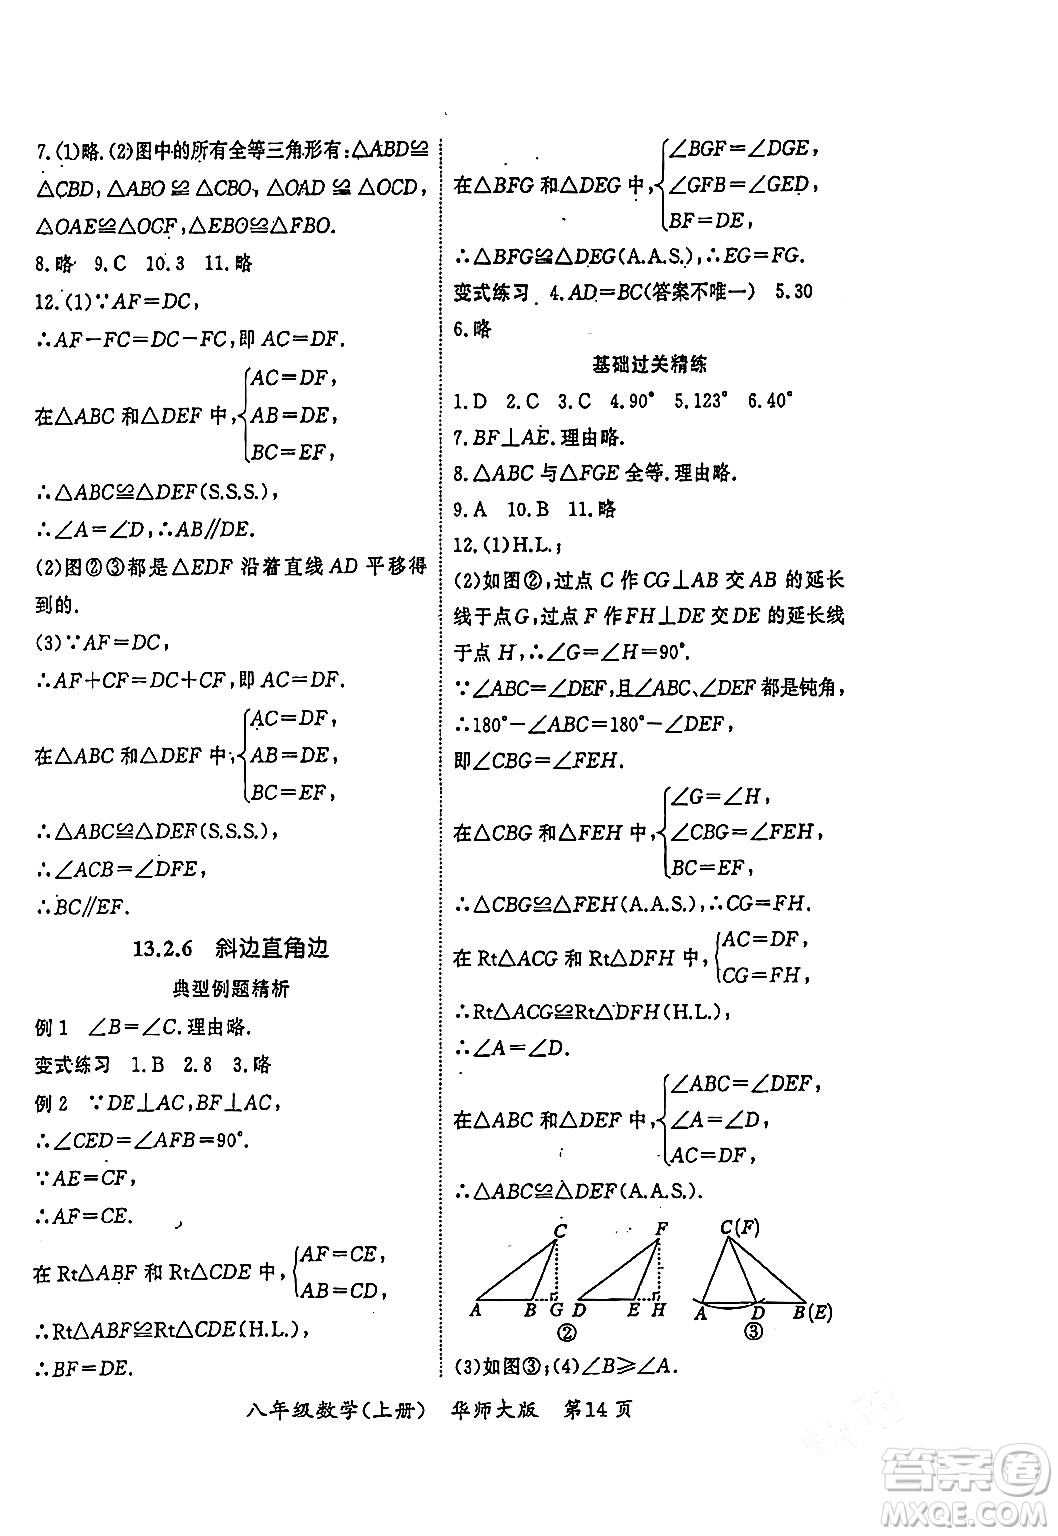 7.(1)略.(2)图中的所有全等三角形有:△ABD≌
△CBD,△ABO≌△CBO,△OAD≌△OCD,
△OAE≌△OCF,△EBO≌△FBO.
8.略 9.C 10.3 11.略
12.(1)∵AF=DC,
∴AF-FC=DC-FC,即AC=DF.
在△ABC和△DEF中,{AC=DF,
AB=DE,
BC=EF,
∴△ABC≌△DEF(S.S.S.),
∴∠A=∠D,∴AB∥DE.
(2)图②③都是△EDF沿着直线AD平移得
到的.
(3)∵AF=DC,
∴AF+CF=DC+CF,即AC=DF.
在△ABC和△DEF中,{AC=DF,
AB=DE,
BC=EF,
∴△ABC≌△DEF(S.S.S.),
∴∠ACB=∠DFE,
∴BC∥EF.
13.2.6 斜边直角边
典型例题精析
例1 ∠B=∠C.理由略.
变式练习 1.B 2.8 3.略
例2 ∵DE⊥AC,BF⊥AC,
∴∠CED=∠AFB=90°.
∵AE=CF,
∴AF=CE.
在Rt△ABF和Rt△CDE中,{AF=CE,
AB=CD,
∴Rt△ABF≌Rt△CDE(H.L.),
∴BF=DE.
在△BFG和△DEG中,{∠BGF=∠DGE,
∠GFB=∠GED,
BF=DE,
∴△BFG≌△DEG(A.A.S.),∴EG=FG.
变式练习 4.AD=BC(答案不唯一) 5.30
6.略
基础过关精练
1.D 2.C 3.C 4.90° 5.123° 6.40°
7.BF⊥AE.理由略.
8.△ABC与△FGE全等.理由略.
9.A 10.B 11.略
12.(1)H.L.;
(2)如图②,过点C作CG⊥AB交AB的延长
线于点G,过点F作FH⊥DE交DE的延长线
于点H,∴∠G=∠H=90°.
∵∠ABC=∠DEF,且∠ABC、∠DEF都是钝角,
∴180°-∠ABC=180°-∠DEF,
即∠CBG=∠FEH.
在△CBG和△FEH中,{∠G=∠H,
∠CBG=∠FEH,
BC=EF,
∴△CBG≌△FEH(A.A.S.),∴CG=FH.
在Rt△ACG和Rt△DFH中,{AC=DF,
CG=FH,
∴Rt△ACG≌Rt△DFH(H.L.),
∴∠A=∠D.
在△ABC和△DEF中,{∠ABC=∠DEF,
∠A=∠D,
AC=DF,
∴△ABC≌△DEF(A.A.S.).
C F C(F)
A B G D E H A D B(E)
② ③
(3)如图③;(4)∠B≥∠A.
八年级数学(上册) 华师大版 第14页
答案圈
MXQE.COM